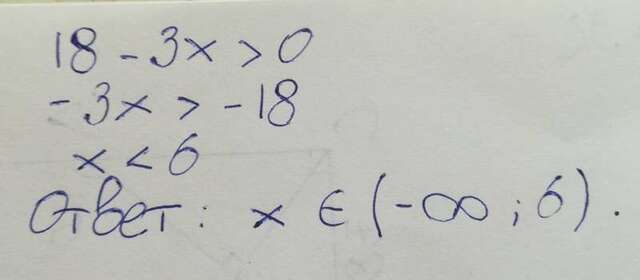 18 - 3x > 0
- 3x > - 18
x < 6
Ответ: x ∈ (-∞; 6).